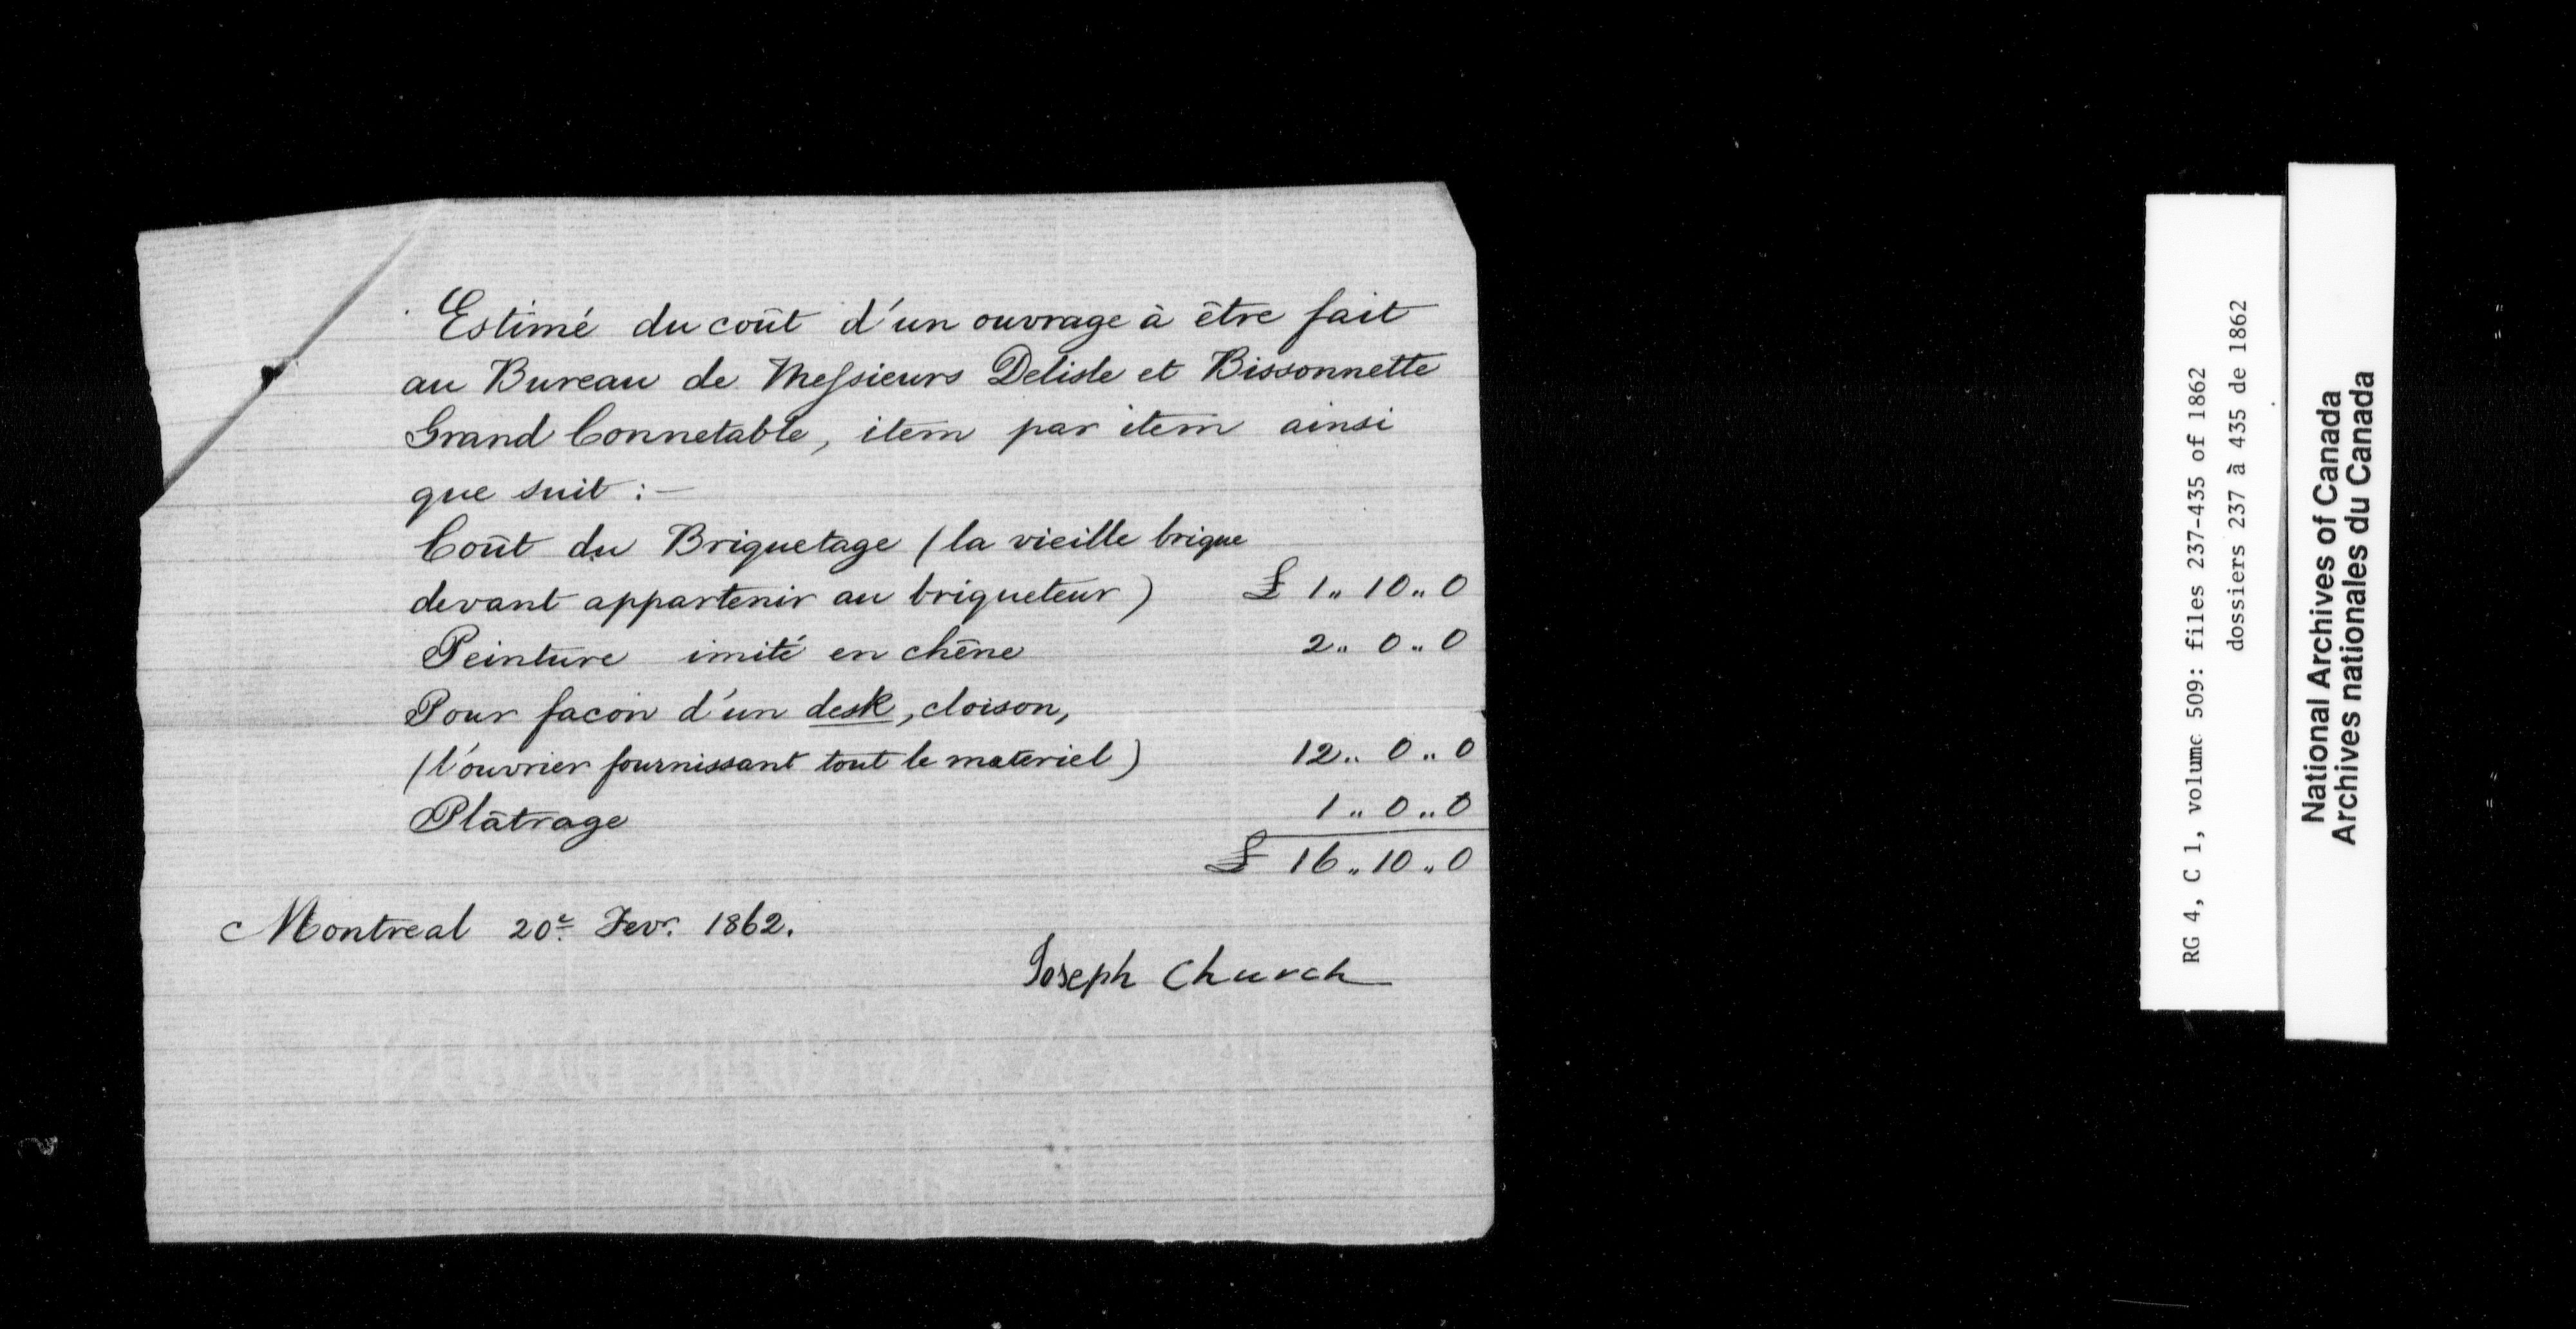 Estimé du coût d'un ouvrage à être fait
au Bureau de Messieurs Delisle et Bissonnette
Grand Connetable, item par item ainsi
que suit :—
Coût du Briquetage (la vieille brique
devant appartenir au briqueteur) £ 1 " 10 " 0
Peinture imité en chêne 2 " 0 " 0
Pour facon d'un desk, cloison,
(l'ouvrier fournissant tout le materiel) 12 " 0 " 0
Plâtrage 1 " 0 " 0
£ 16 " 10 " 0
Montreal 20e Fevr. 1862.
Joseph Church
RG 4, C 1, volume 509: files 237-435 of 1862
dossiers 237 à 435 de 1862
National Archives of Canada
Archives nationales du Canada